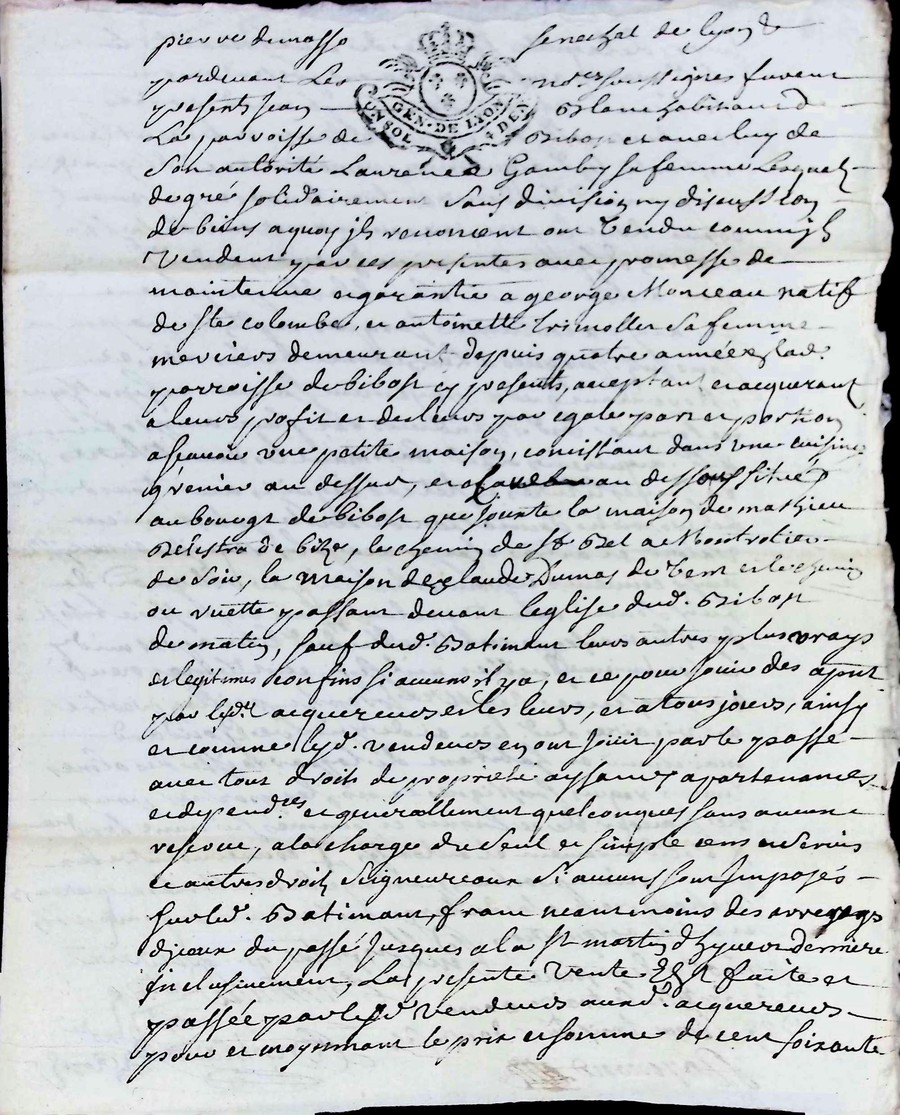 pierre demasso senechal de lyon &
pardevant Les no.res soussignes furent
presents Jean Blanc habitant d
La parroisse de Bibost et avec luy de
Son autorité Laurence Gamby sa femme Lesquels
de gré solidairement sans division ny discussion
de biens a quoy ils renoncent ont vendu comme ils
vendent par ces presentes avec promesse de
maintenue et garantie a george Monceau natif
de ste colombe, et antoinette trimollet sa femme
merciers demeurant depuis quatre années a lad.
parroisse de bibost cy presents, acceptant et acquerant
a leurs profit et des leurs par egale part et portion
a scavoir une petite maison, consistant dans une cuisine
grenier au dessus, et au dessous situés
au bourgt de bibost que jouxte la maison de mathieu
de bize, le chemin de st Bel a Montrotier
de soir, la maison de claude Dumas de vent et le chemin
ou ruette passant devant l'eglise dud. Bibost
de matin, sauf dud. Batiment leurs autres plus vrays
et legitimes confins si aucuns il y a, et ce pour jouir des apnt
par lesd. acquereurs et les leurs, et a tous jours, ainsy
et comme lesd. vendeurs en ont jouit par le passé
avec tout droits de propriété aysances apartenances
et depend.ces et generallement quelconques sans aucune
reserve, a la charge du seul et simple cens et servis
et autres droits seigneureaux si aucuns sont imposés
sur led. Batiment, franc neantmoins des arrerages
d'jceux du passé jusques a la st martin d'hyver derniere
jnclusivement, La presente vente Est faite et
passée par lesd. vendeurs auxd. acquereurs
pour et moyennant le prix et somme de cent soixante
GEN. DE LYON
UN SOL 4 DEN